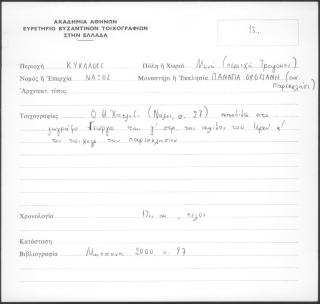 ΑΚΑΔΗΜΙΑ ΑΘΗΝΩΝ
ΕΥΡΕΤΗΡΙΟ ΒΥΖΑΝΤΙΝΩΝ ΤΟΙΧΟΓΡΑΦΙΩΝ
ΣΤΗΝ ΕΛΛΑΔΑ
13.
Περιοχή ΚΥΚΛΑΔΕΣ Πόλη ή Χωριό Μονή (περιοχή Τραγαίας)
Νομός ή Επαρχία ΝΑΞΟΣ Μοναστήρι ή Εκκλησία ΠΑΝΑΓΙΑ ΔΡΟΣΙΑΝΗ (
παρεκκλήσι)
Αρχιτεκτ. τύπος
Τοιχογραφίες Ο Μ. (Νάξος, σ. 27) στο
ζωγράφο Γεώργιο του γ' στρ. της αψίδας του Ιερού
τις τοιχογρ. του παρεκκλησίου
Χρονολογία 13ος αι., τέλος
Κατάσταση
Βιβλιογραφία 2000 σ. 97